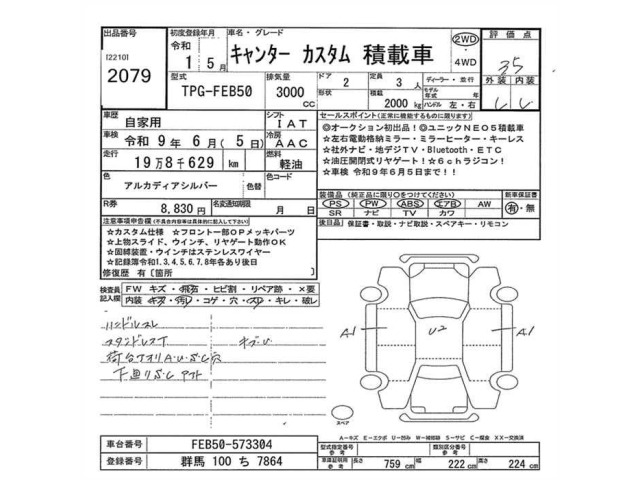 出品番号
[2210]
2079
初度登録年月
令和
1 5月
車名・グレード
キャンター カスタム 積載車
2WD
・
4WD
評価点
3.5
外装 内装
型式
TPG-FEB50
排気量
3000
CC
ドア
2
形状
定員
3 人
積載
2000 kg
ディーラー・並行
モデル年式 年
ハンドル 左・右
車歴
自家用
シフト
IAT
車検
令和 9年 6月( 5日)
冷房
AAC
走行
19万8千629 km
燃料
軽油
色
アルカディアシルバー
色替
色コード
R券
8,830 円
名変通知期限
月 日
セールスポイント(正常に機能するものに限ります)
◎オークション初出品!◎ユニックNEO5積載車
☆左右電動格納ミラー・ミラーヒーター・キーレス
☆社外ナビ・地デジTV・Bluetooth・ETC
☆油圧開閉式リヤゲート!☆6chラジコン!
☆車検 令和9年6月5日まで!!
装備品(純正品に限り○をつけてください)
PS PW ABS エアB AW
SR ナビ TV カワ
新車保証書
有・無
後日品 保証書・取説・ナビ取説・スペアキー・リモコン
注意事項申告欄(不具合内容等は具体的に記入して下さい)
☆カスタム仕様 ☆フロント一部OPメッキパーツ
☆上物スライド、ウインチ、リヤゲート動作OK
☆固縛装置・ウインチはステンレスワイヤー
☆記録簿令和1,3,4,5,6,7,8年各あり後日
修復歴 有〔箇所 〕
検査員記入欄
FW キズ・飛石・ヒビ割・リペア跡・×要
内装 キズ・汚れ・コゲ・穴・スレ・キレ・破レ
ハンドルスレ
A1
U2
A1
スペア
A-キズ E-エクボ U-凹み W-補修跡 S-サビ C-腐食 XX-交換済
車台番号
FEB50-573304
登録番号
群馬 100 ち 7864
型式指定番号 参考
類別区分番号 参考
車庫証明用 参考
長さ 759 cm 幅 222 cm 高さ 224 cm